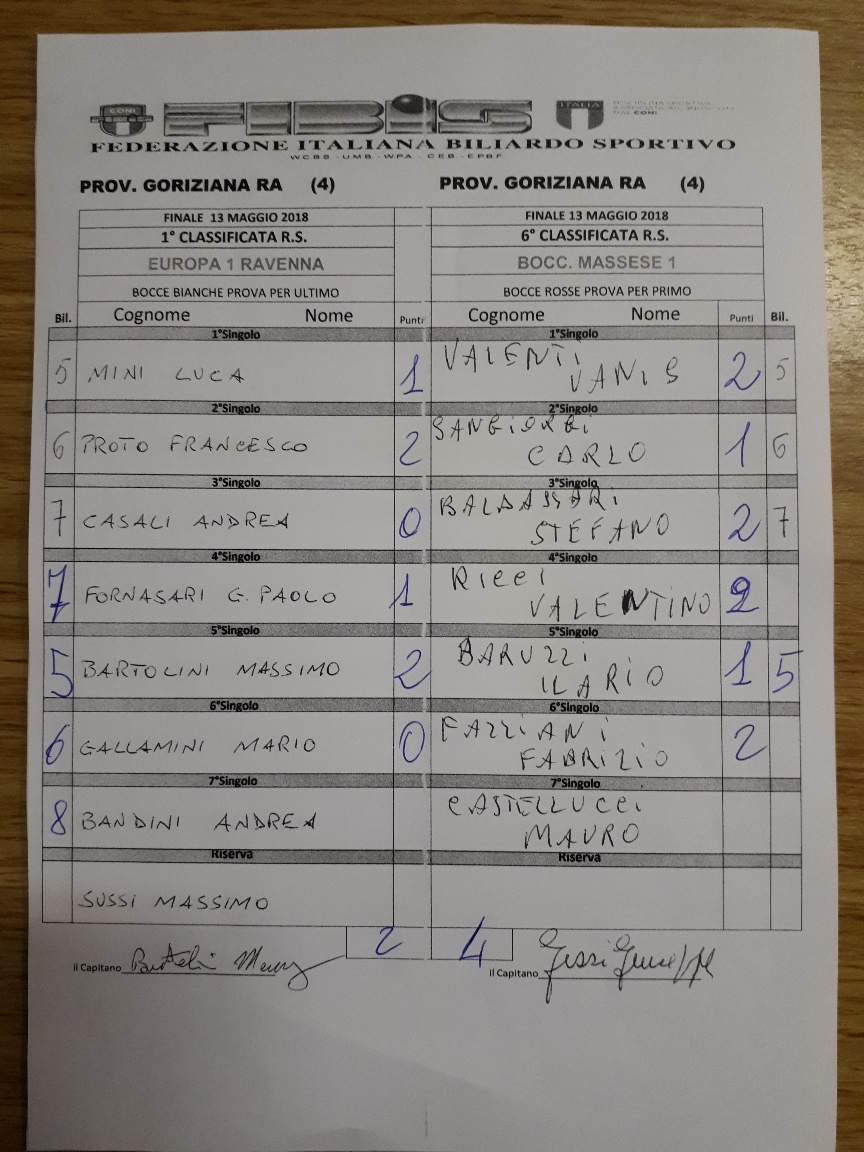 CONI
FIBIS
ITALIA
FEDERAZIONE ITALIANA BILIARDO SPORTIVO
WCBS - UMB - WPA - CEB - EPBF
PROV. GORIZIANA RA (4) PROV. GORIZIANA RA (4)
FINALE 13 MAGGIO 2018 FINALE 13 MAGGIO 2018
1° CLASSIFICATA R.S. 6° CLASSIFICATA R.S.
EUROPA 1 RAVENNA BOCC. MASSESE 1
BOCCE BIANCHE PROVA PER ULTIMO BOCCE ROSSE PROVA PER PRIMO
Bil. Cognome Nome Punti Cognome Nome Punti Bil.
1°Singolo 1°Singolo
5 MINI LUCA 1 VALENTI VANIS 2 5
2°Singolo 2°Singolo
6 PROTO FRANCESCO 2 SANGIORGI CARLO 1 6
3°Singolo 3°Singolo
7 CASALI ANDREA 0 BALDASSARI STEFANO 2 7
4°Singolo 4°Singolo
7 FORNASARI G. PAOLO 1 RICCI VALENTINO 2
5°Singolo 5°Singolo
5 BARTOLINI MASSIMO 2 BARUZZI ILARIO 1 5
6°Singolo 6°Singolo
6 GALLAMINI MARIO 0 FAZZIANI FABRIZIO 2
7°Singolo 7°Singolo
8 BANDINI ANDREA CASTELLUCCI MAURO
Riserva Riserva
SUSSI MASSIMO
2 4
Il Capitano Il Capitano Gessi Giuseppe